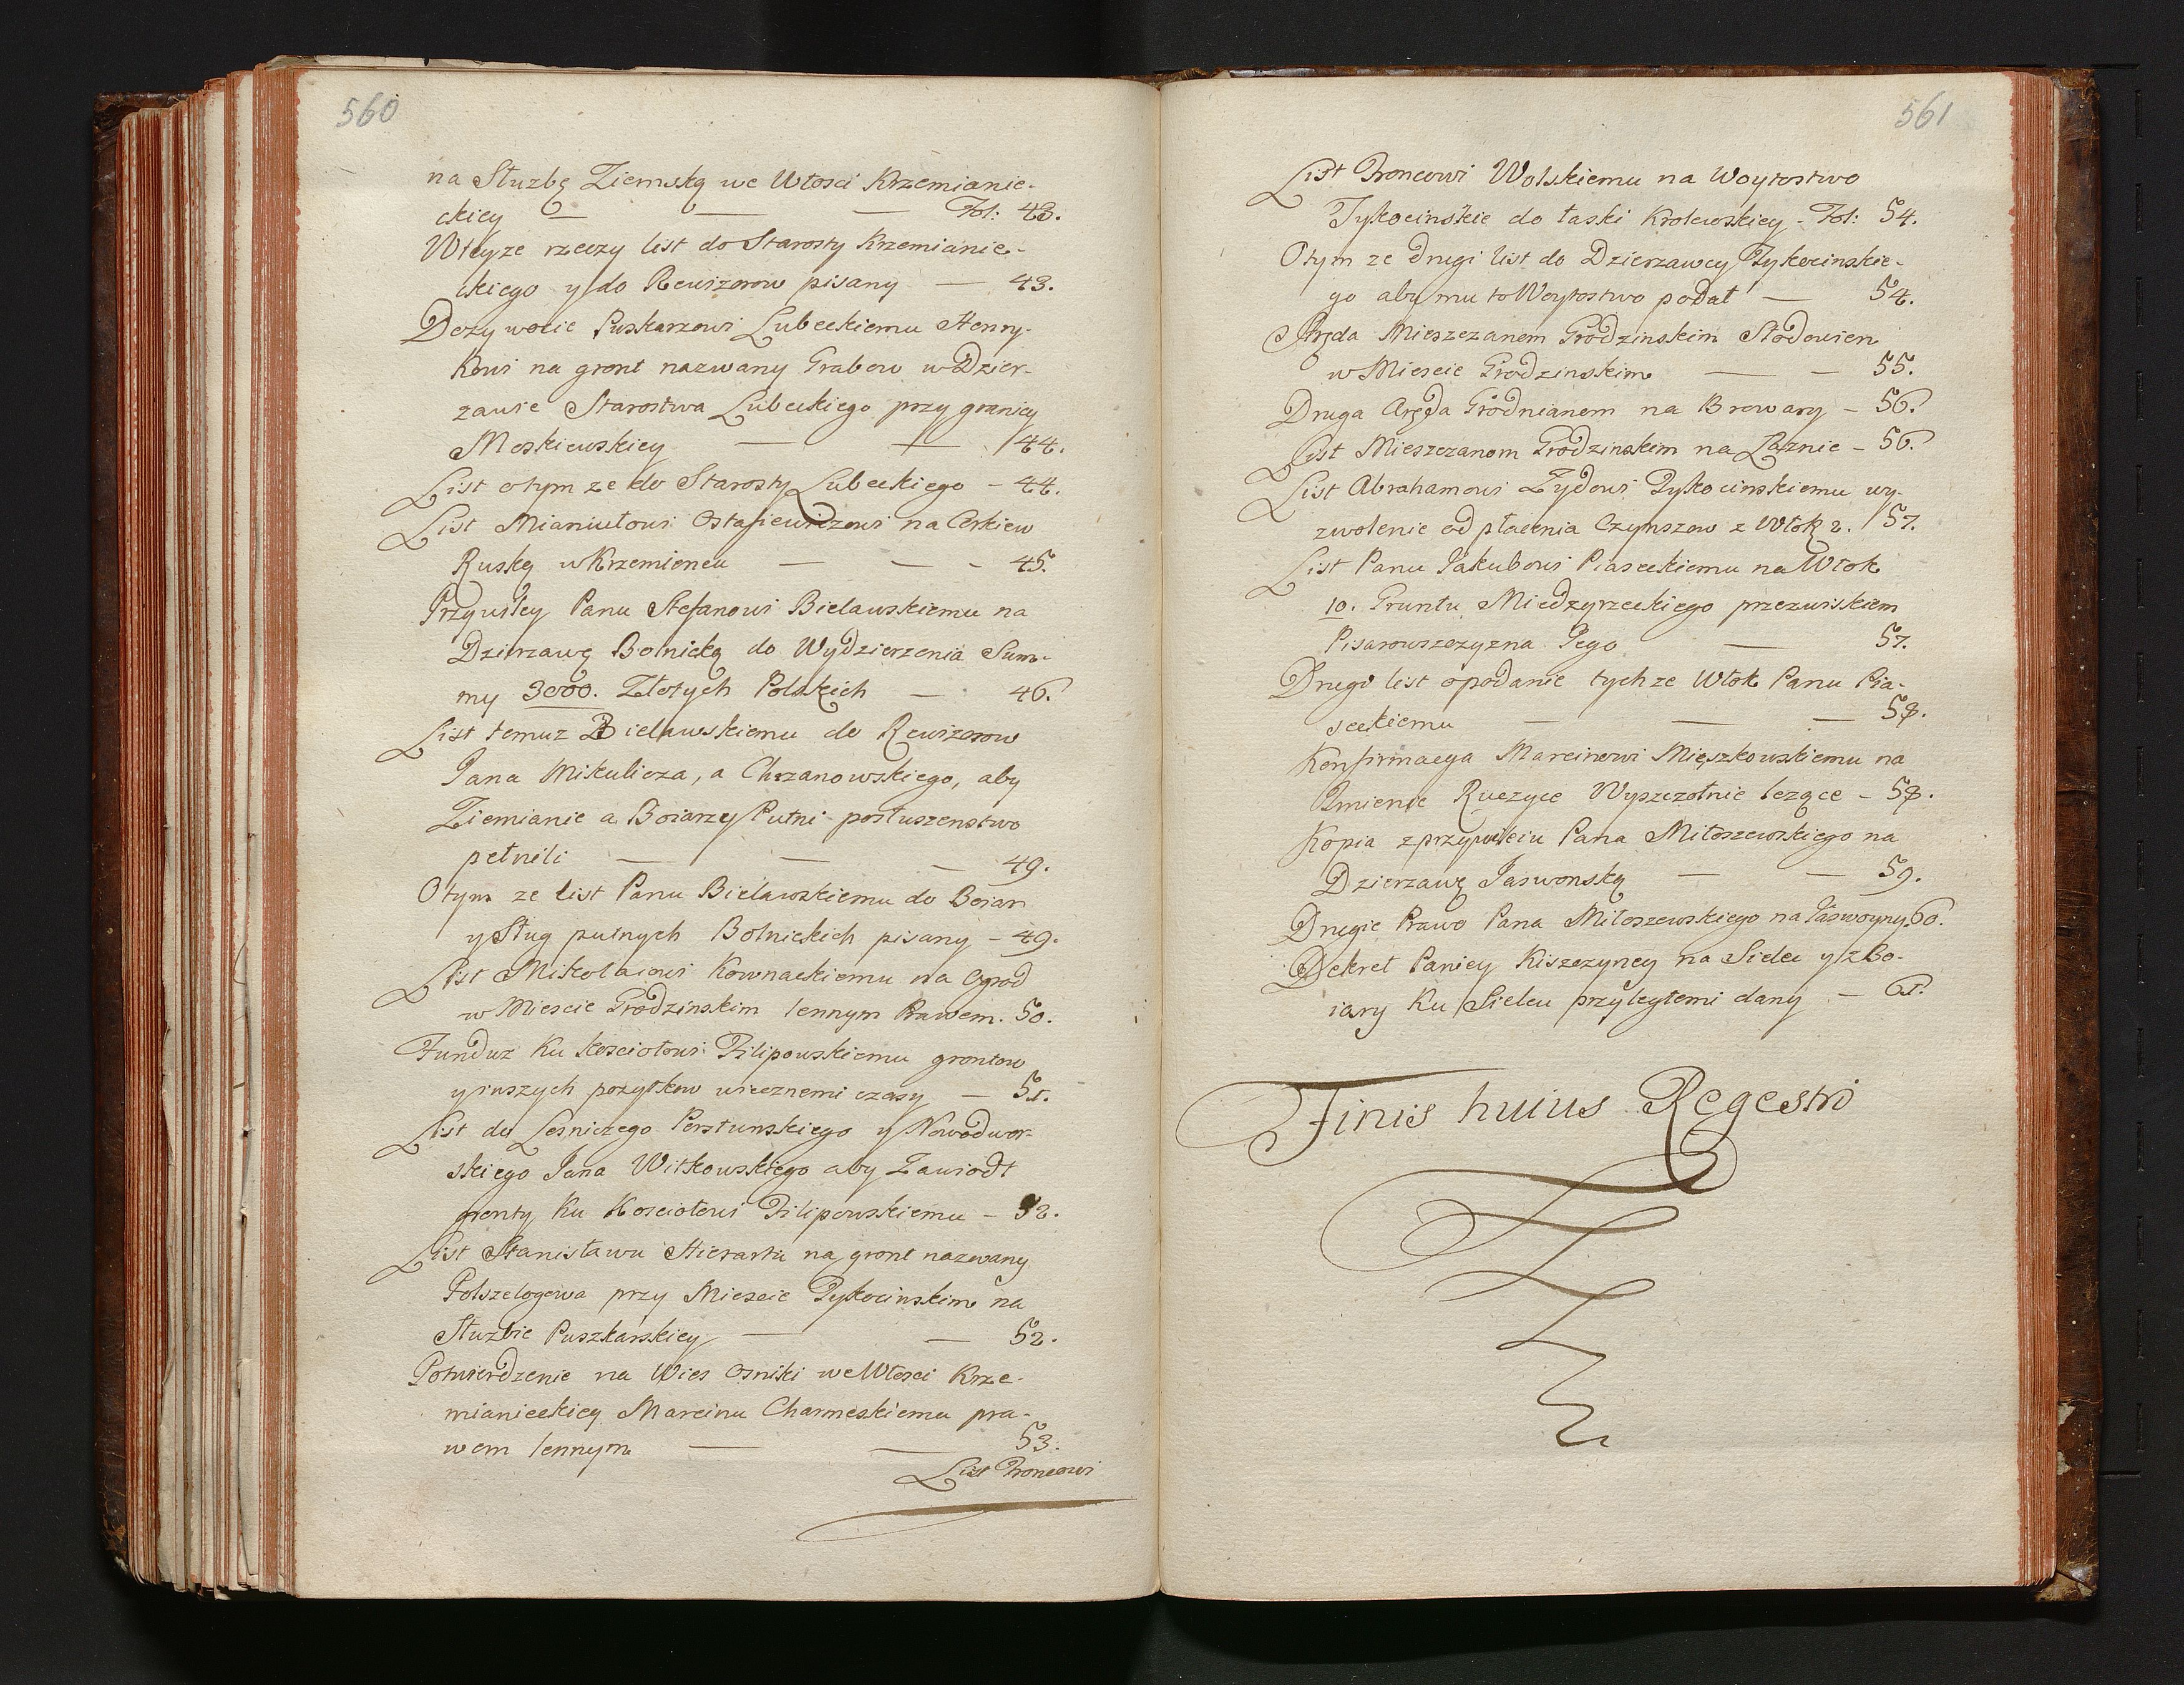 560
na Służbę Ziemską we Włosci Krzemianie-
ckiey — — — Fol: 43.
Wteyze rzeczy list do Starosty Krzemianie-
ckiego y do Rewizorow pisany — 43.
Dozywocie Puskarzowi Lubeckiemu Henry-
kowi na gront nazwany Grabow w Dzier-
zawie Starostwa Lubeckiego przy granicy
Moskiewskiey — — 44.
List otym ze do Starosty Lubeckiego – 44.
List Mianiułowi Ostafiewiczowi na Cerkiew
Ruską w Krzemiencu — — - 45.
Przywiley Panu Stefanowi Bielawskiemu na
Dzierzawę Bolnicką do Wydzierzenia Sum-
my 3000. Złotych Polskich — 46.
List temuz Bielawskiemu do Rewizorow
Jana Mikulicza, a Chrzanowskiego, aby
Ziemianie a Boiarzy Putni posłuszenstwo
pełnili — — — 49.
Otym ze list Panu Bielawskiemu do Boiar
y Sług putnych Bolnickich pisany – 49.
List Mikołaiowi Kownackiemu na Ogrod
w Miescie Grodzinskim lennym Prawem. 50.
Fundusz Ku Kosciołowi Filipowskiemu grontow
y inszych pozytkow wiecznemi czasy — 51.
List do Lesniczego Perstunskiego y Nowodwor-
skiego Jana Witkowskiego aby Zawiodł
gronty Ku Kosciołowi Filipowskiemu – 52.
List Stanisławu na gront nazwany
przy Miescie Tykocinskim na
Służbie Puszkarskiey — — 52.
Potwierdzenie na Wies Osniki we Włosci Krze-
mianieckiey Marcinu Charmeskiemu pra-
wem lennym — — 53.
List Broncowi
561
List Broncowi Wolskiemu na Woytostwo
Tykocinskie do łaski Krolewskiey – Fol: 54.
Otym ze drugi list do Dzierzawcy Tykocinskie-
go aby mu to Woytostwo podał — 54.
Aręda Mieszczanom Grodzinskim Słodowien
w Miescie Grodzinskim — — 55.
Druga Aręda Grodnianom na Browary – 56.
List Mieszczanom Grodzinskim na Łaznie – 56.
List Abrahamowi Zydowi Tykocinskiemu wy-
zwolenie od płacenia Czynszow z Włok 2. 57.
List Panu Jakubowi Piaseckiemu na Włok
10. Gruntu Miedzyrzeckiego przezwiskiem
Pisarowszczyzna Jego — 57.
Drugi list o podanie tych ze Włok Panu Pia-
seckiemu — — — 58.
Konfirmacya Marcinowi Mięszkowskiemu na
Imienie Ruczyce Wyszczołnie lezące – 58.
Kopia z przywileiu Pana Miłoszewskiego na
Dzierzawę Jaswonską — — 59.
Drugie Prawo Pana Miłoszewskiego na Jaswoyny 60.
Dekret Paniey Kiszczyney na Sielec y z Bo-
iary Ku Sielcu przyległemi dany — 61.
Finis huius Regestri